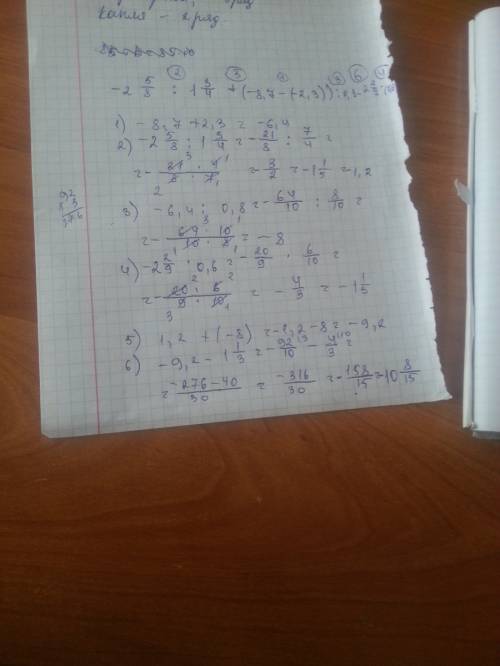 Капля - 2 ряд
② ③ ① ⑤ ⑥ ④
-2 5/8 : 1 3/4 + (-8,7-(-2,3)) : 0,8 - 2 2/9 ·
1) -8,7 + 2,3 = -6,4
2) -2 5/8 : 1 3/4 = -21/8 : 7/4 =
= - 21 · 4 / 8 · 7 = -3/2 = -1 1/5 = 1,2
92
3
276
3) -6,4 : 0,8 = -64/10 : 8/10 =
= - 64 · 10 / 10 · 8 = -8
4) -2 2/9 · 0,6 = -20/9 · 6/10 =
= - 20 · 6 / 9 · 10 = -4/3 = -1 1/3
5) 1,2 + (-8) = -1,2 - 8 = -9,2
6) -9,2 - 1 1/3 = -92/10 - 4/3 =
= -276-40/30 = -316/30 = -158/15 = -10 8/15